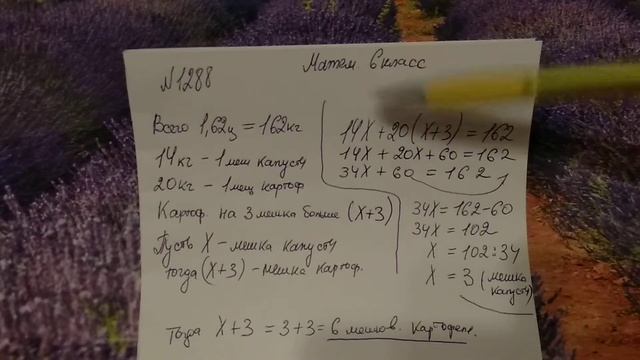 N1288
Матем. 6 класс
Всего 1,62ц = 162кг
14кг - 1 меш капусты
20кг - 1 меш картоф
Картоф. на 3 мешка больше (X+3)
Пусть X - мешка капусты
тогда (X+3) - мешка картоф.
14X + 20(X+3) = 162
14X + 20X + 60 = 162
34X + 60 = 162
34X = 162-60
34X = 102
X = 102:34
X = 3 (мешка
капусты)
Тогда X+3 = 3+3 = 6 мешков. картофеля.